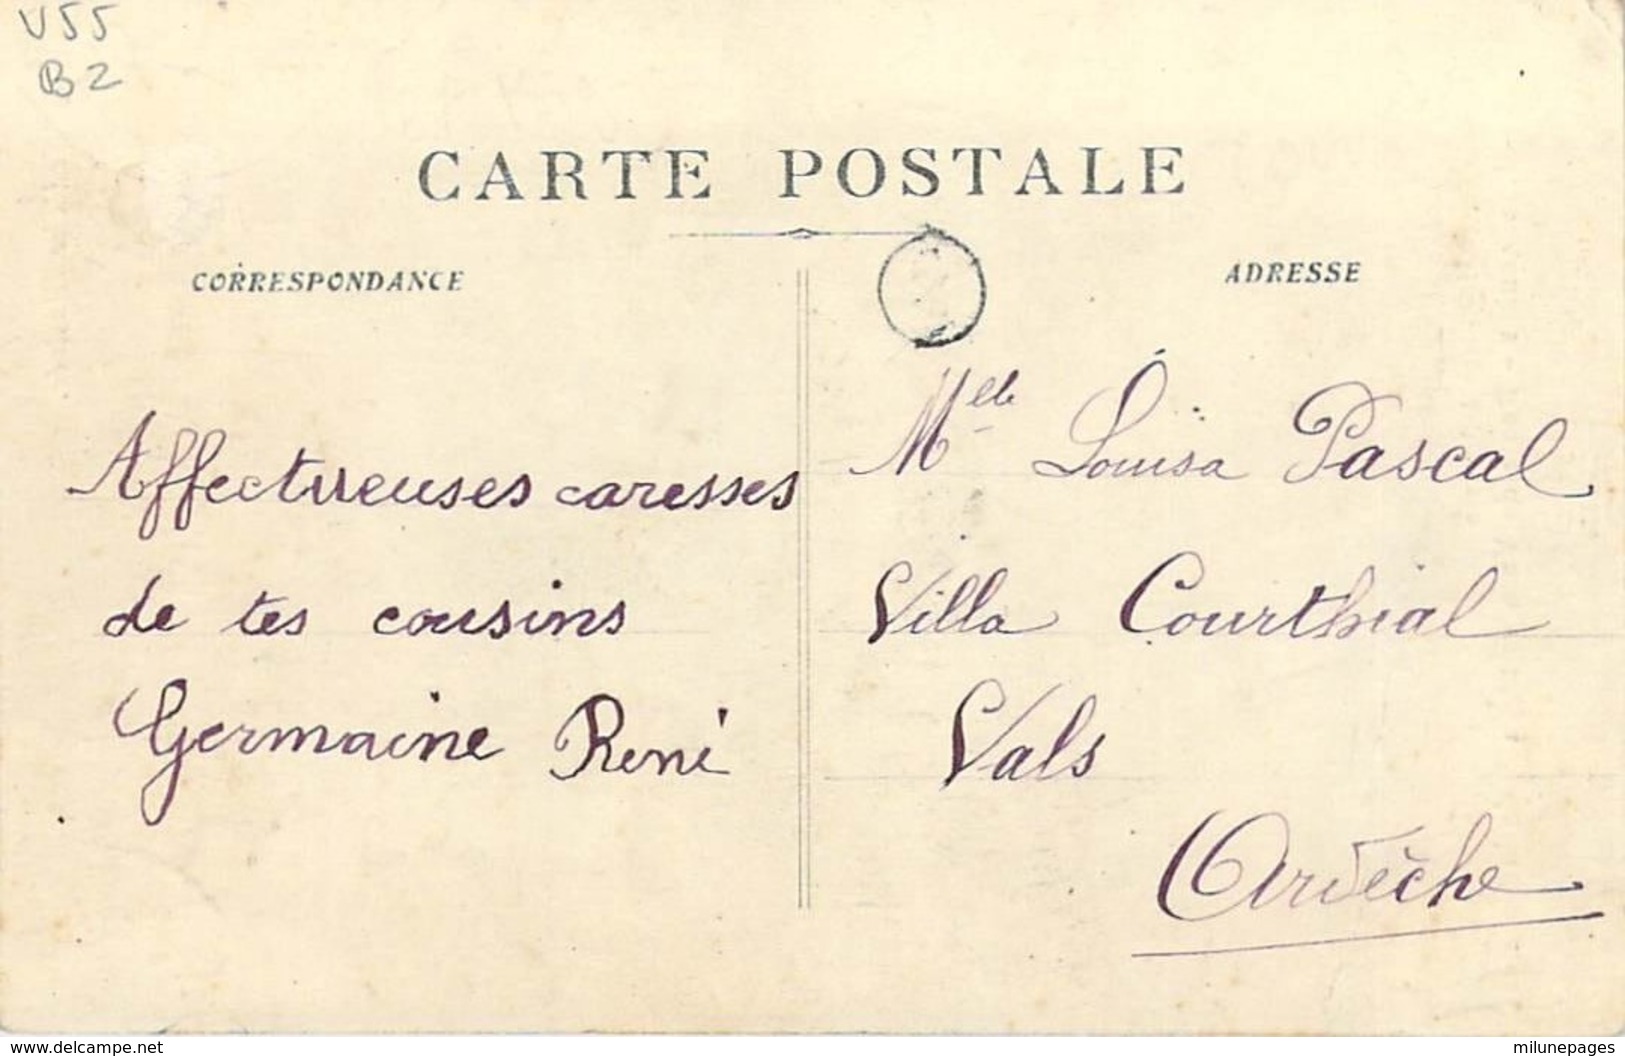 V55
B2
CARTE POSTALE
CORRESPONDANCE
ADRESSE
Affectueuses caresses
de tes cousins
Germaine René
Mlle Louisa Pascal
Villa Courthial
Vals
Ardèche
www.delcampe.net
milunepages